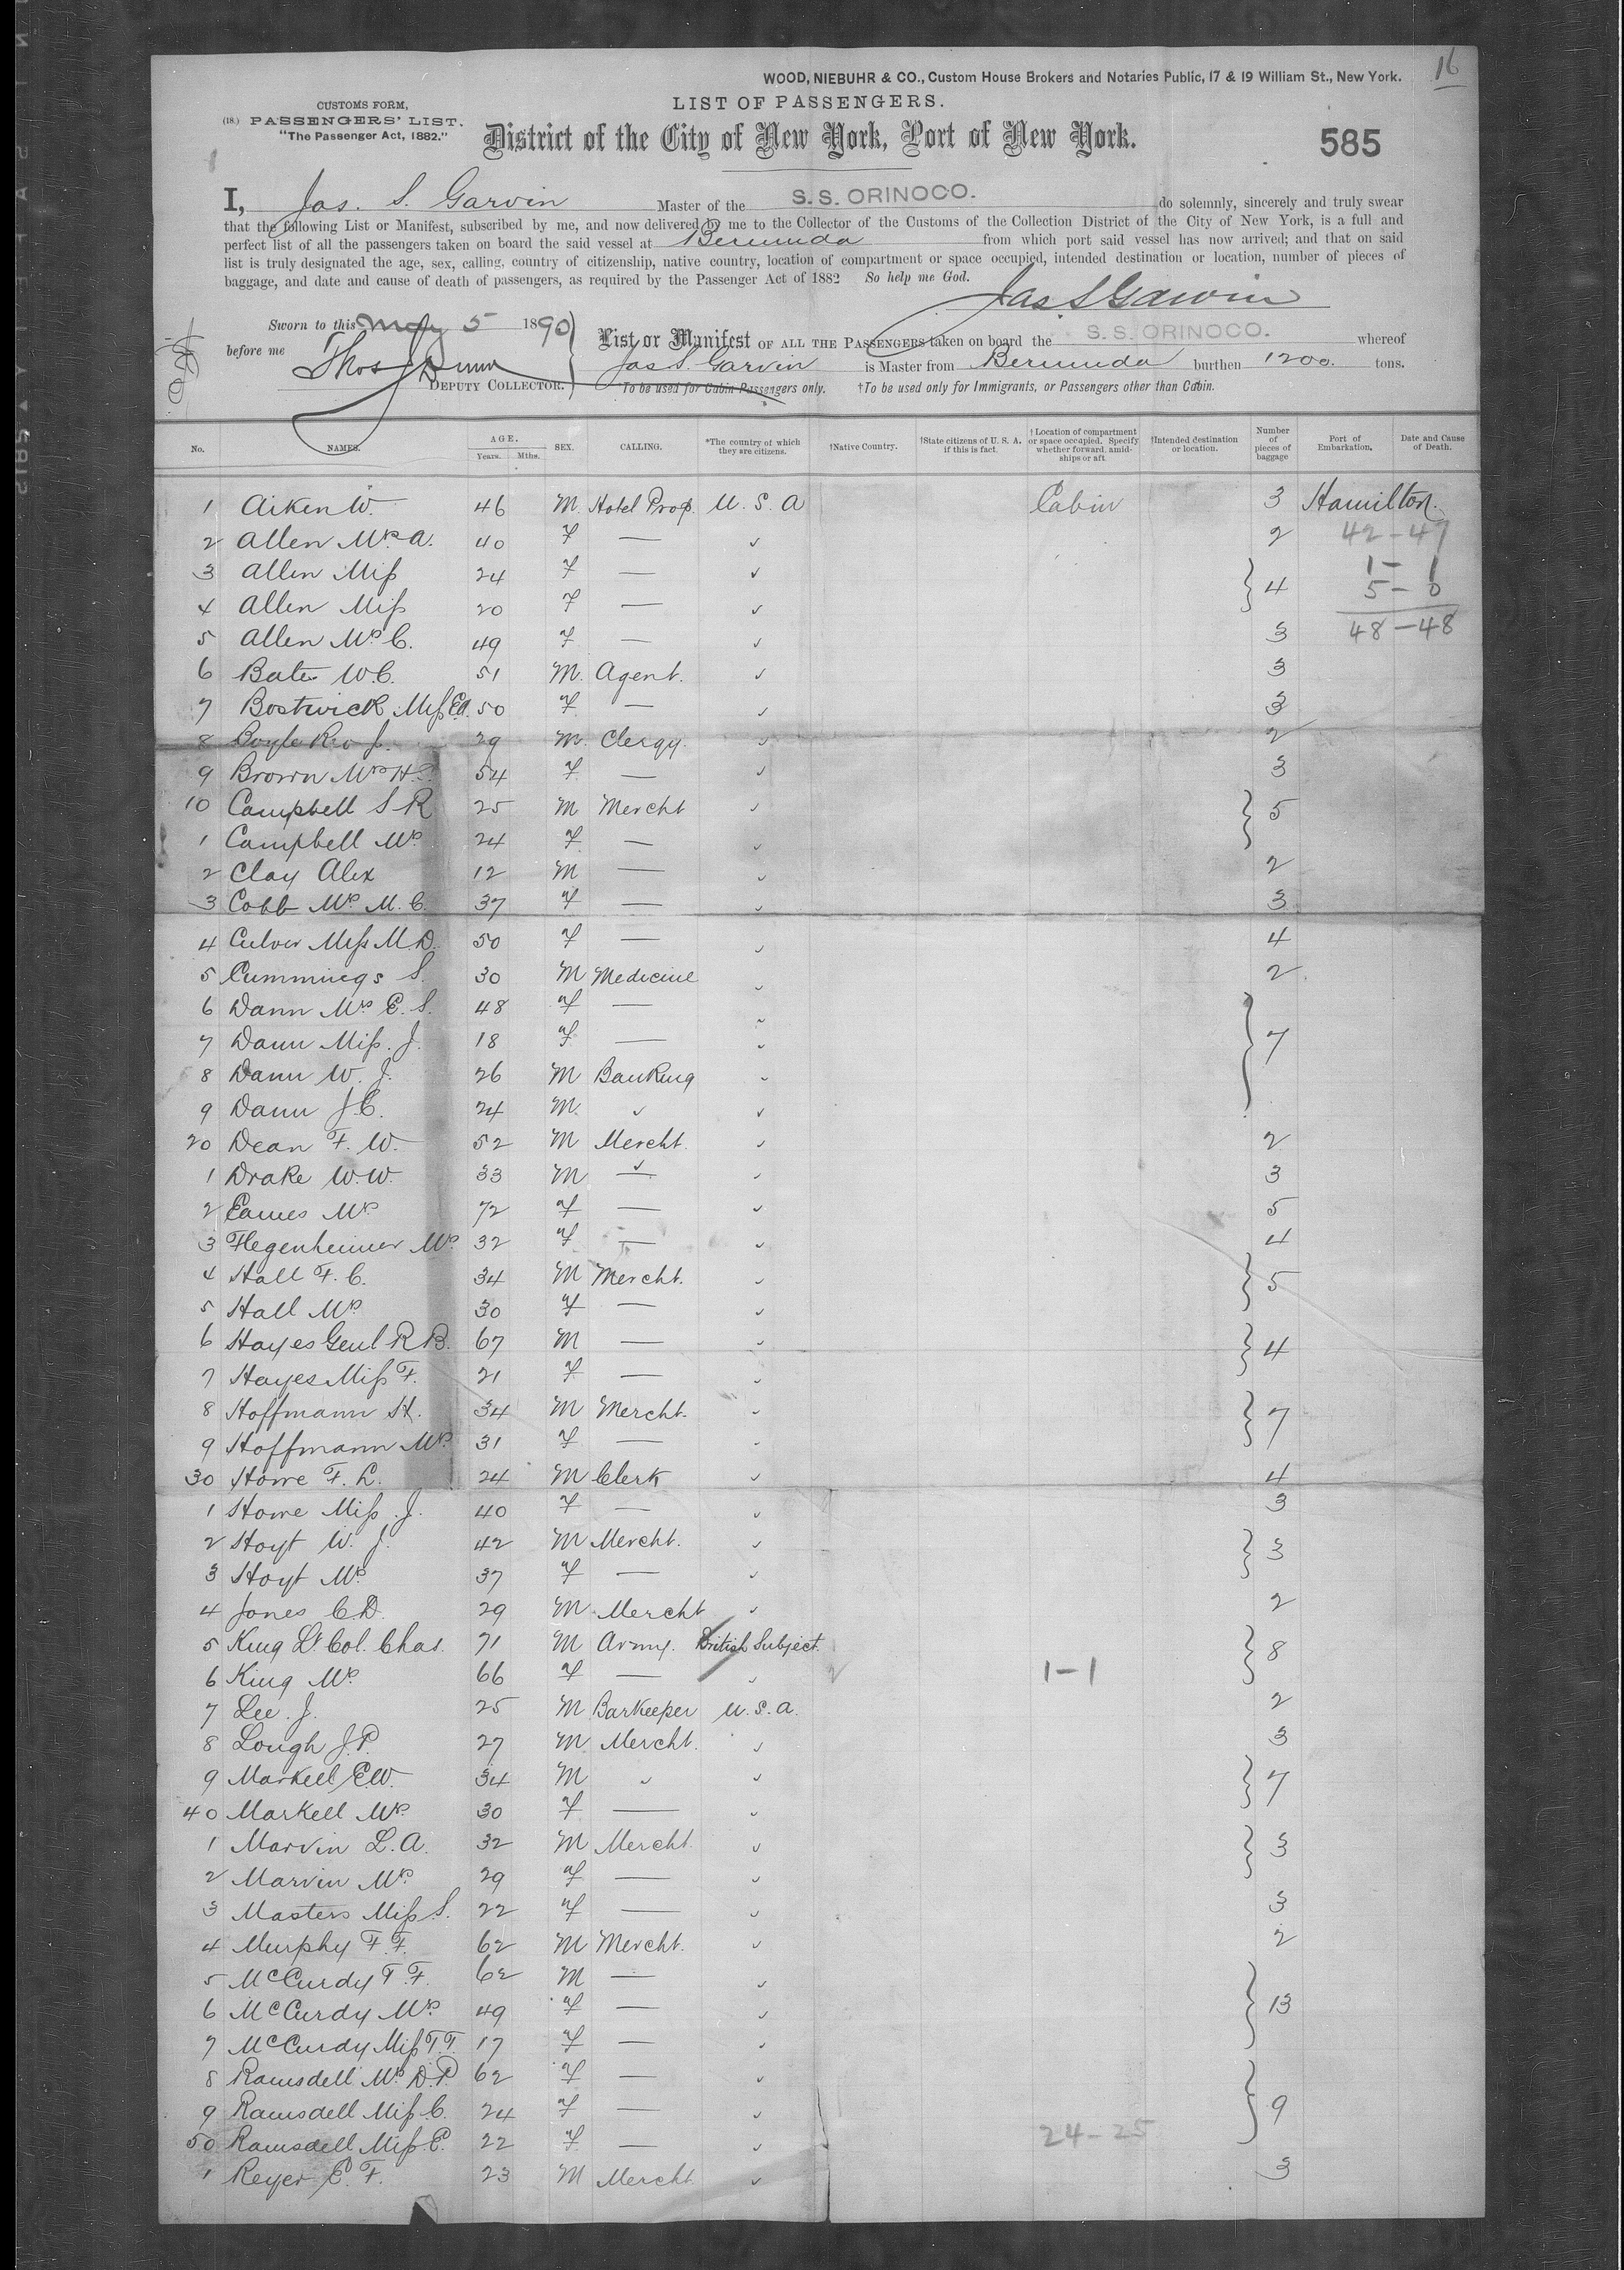 16
WOOD, NIEBUHR & CO., Custom House Brokers and Notaries Public, 17 & 19 William St., New York.
CUSTOMS FORM,
(18.) PASSENGERS' LIST.
"The Passenger Act, 1882."
LIST OF PASSENGERS.
District of the City of New York, Port of New York.
585
I, Jas. S. Garvin Master of the S.S. ORINOCO. do solemnly, sincerely and truly swear
that the following List or Manifest, subscribed by me, and now delivered by me to the Collector of the Customs of the Collection District of the City of New York, is a full and
perfect list of all the passengers taken on board the said vessel at Bermuda from which port said vessel has now arrived; and that on said
list is truly designated the age, sex, calling, country of citizenship, native country, location of compartment or space occupied, intended destination or location, number of pieces of
baggage, and date and cause of death of passengers, as required by the Passenger Act of 1882 So help me God.
Jas. S Garvin
Sworn to this May 5 1890
before me
Thos J Dunn
DEPUTY COLLECTOR.
List or Manifest OF ALL THE PASSENGERS taken on board the S.S. ORINOCO. whereof
Jas S. Garvin is Master from Bermuda burthen 1200. tons.
*To be used for Cabin Passengers only. †To be used only for Immigrants, or Passengers other than Cabin.
No. NAMES. AGE. Years. Mths. SEX. CALLING. *The country of which they are citizens. †Native Country. †State citizens of U. S. A. if this is fact. †Location of compartment or space occupied. Specify whether forward, amidships or aft. †Intended destination or location. Number of pieces of baggage Port of Embarkation. Date and Cause of Death.
1 Aiken W. 46 M. Hotel Prop. U. S. A Cabin 3 Hamilton.
2 Allen Mrs A. 40 F — ✓ 2 42-47
3 Allen Miss 24 F — ✓ 1-1
4 Allen Miss 20 F — ✓ } 4 5-0
5 Allen Mrs C. 49 F — ✓ 3 48-48
6 Bates W.C. 51 M. Agent. ✓ 3
7 Bostwick Miss E.A. 50 F — ✓ 3
8 Boyle Rev J. 29 M. Clergy. ✓ 2
9 Brown Mrs H.S. 54 F — ✓ 3
10 Campbell S R 25 M Mercht ✓ } 5
1 Campbell Mrs 24 F — ✓
2 Clay Alex 12 M — ✓ 2
3 Cobb Mrs M. C. 37 F — ✓ 3
4 Culver Miss M.D. 50 F — ✓ 4
5 Cummings S. 30 M Medicine ✓ 2
6 Dann Mrs E. S. 48 F — ✓
7 Dann Miss. J. 18 F — ✓ } 7
8 Dann W. J. 26 M Banking ✓
9 Dann J.C. 24 M. ✓ ✓
20 Dean F. W. 52 M Mercht. ✓ 2
1 Drake W.W. 33 M ✓ ✓ 3
2 Eames Mrs 72 F — ✓ 5
3 Flegenheimer Mrs 32 F — ✓ 4
4 Hall F. C. 34 M Mercht. ✓ } 5
5 Hall Mrs 30 F — ✓
6 Hayes Genl R B. 67 M — ✓ } 4
7 Hayes Miss F. 21 F — ✓
8 Hoffmann H. 34 M Mercht. ✓ } 7
9 Hoffmann Mrs 31 F — ✓
30 Howe F. L. 24 M Clerk ✓ 4
1 Howe Miss J. 40 F — ✓ 3
2 Hoyt W. J. 42 M Mercht. ✓ } 3
3 Hoyt Mrs 37 F — ✓
4 Jones C.D. 29 M Mercht ✓ 2
5 King Lt. Col. Chas. 71 M Army. British Subject. } 8
6 King Mrs 66 F — ✓ 1-1
7 Lee. J. 25 M Barkeeper U. S. A. 2
8 Lough J.P. 27 M Mercht. ✓ 3
9 Markell E.W. 34 M ✓ ✓ } 7
40 Markell Mrs 30 F — ✓
1 Marvin L. A. 32 M Mercht ✓ } 3
2 Marvin Mrs 29 F — ✓
3 Masters Miss S. 22 F — ✓ 3
4 Murphy F. F. 62 M Mercht. ✓ 2
5 McCurdy T. F. 62 M — ✓
6 McCurdy Mrs. 49 F — ✓ } 13
7 McCurdy Miss T.F. 17 F — ✓
8 Ramsdell Mrs D.P. 62 F — ✓
9 Ramsdell Miss C. 24 F — ✓ } 9
50 Ramsdell Miss E. 22 F — ✓ 24-25
1 Reyer E. F. 23 M Mercht ✓ 3